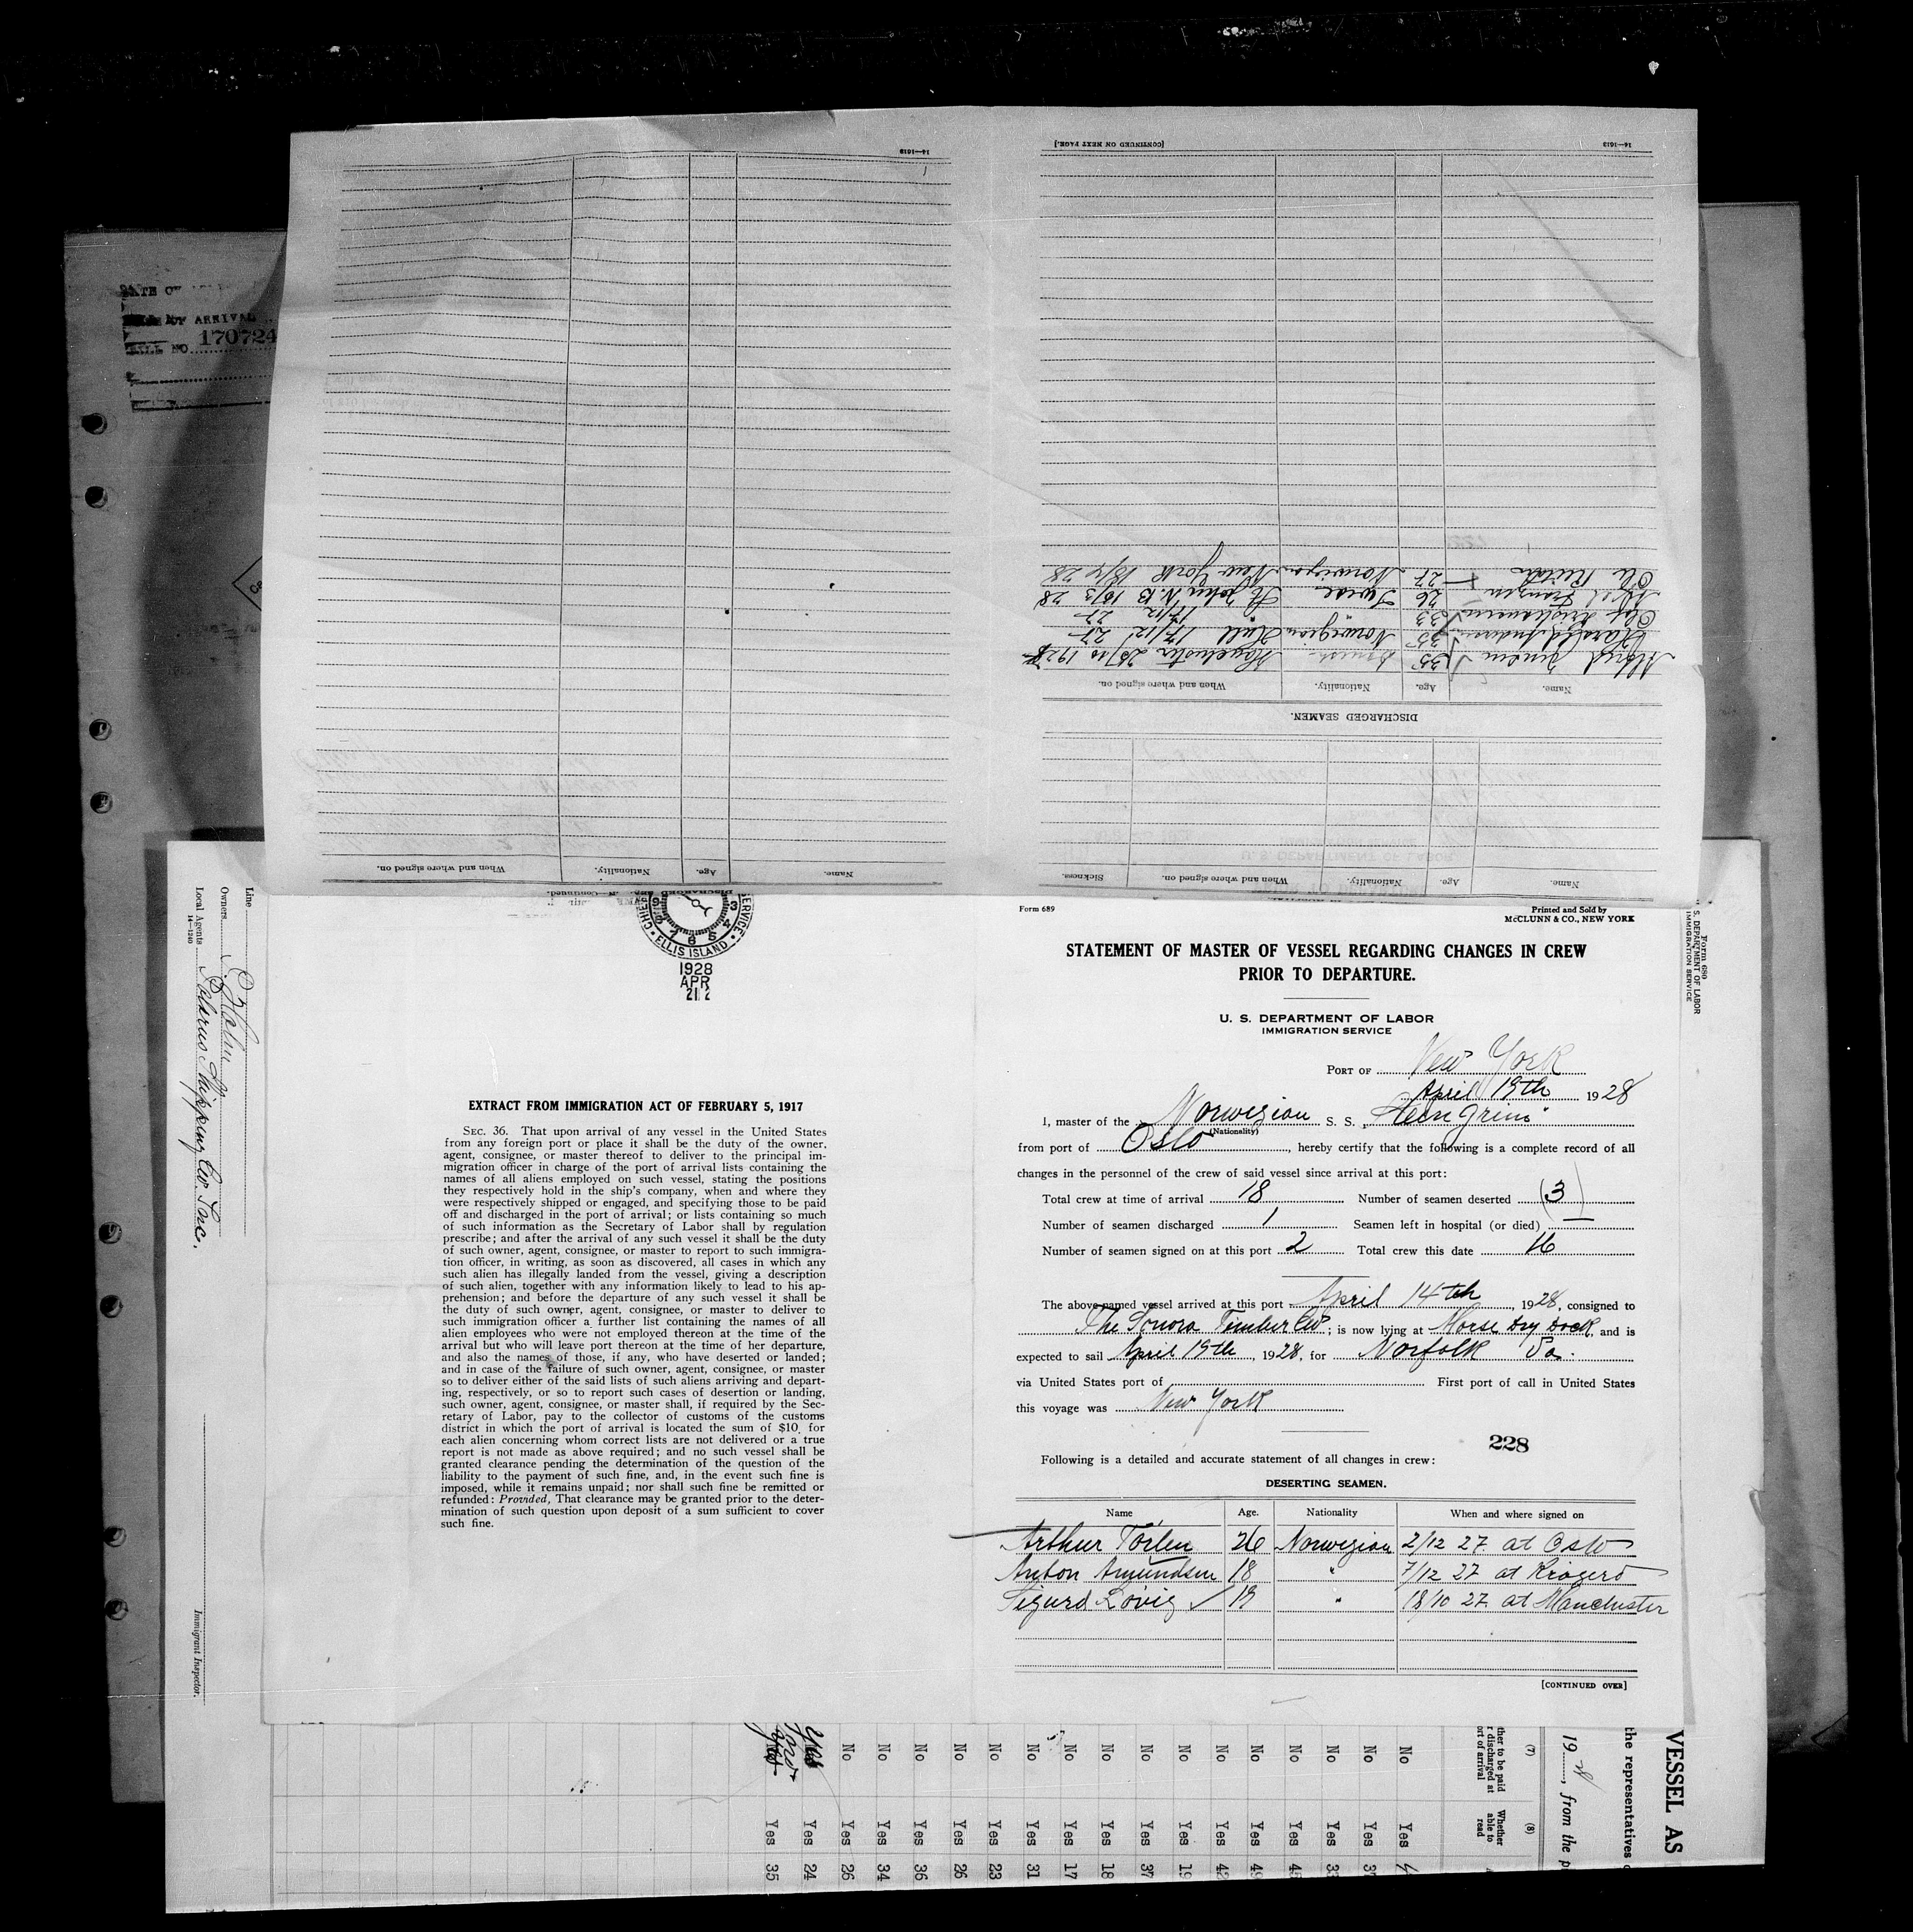 14—1613
[CONTINUED ON NEXT PAGE.]
14—1613
DATE OF
OF ARRIVAL
BILL NO. 170724
Ole
27
Norwegian
New York 18/4 28
Axel Franzen
26
Swede
St John N.B 16/3 28
Olaf
33
"
" 17/12 27
Harald Andersen
35
Norwegian
Hull 17/12 27
Jensen
35
Danish
Name.
Age.
Nationality.
When and where signed on.
DISCHARGED SEAMEN.
Name.
Age.
Nationality.
When and where signed on.
Sickness.
Name.
Age.
Nationality.
When and where signed on.
ELLIS ISLAND
1928
APR
21 2
Line
Owners
Local Agents
Shipping Co. Inc.
14—1240
Immigrant Inspector.
EXTRACT FROM IMMIGRATION ACT OF FEBRUARY 5, 1917
SEC. 36. That upon arrival of any vessel in the United States
from any foreign port or place it shall be the duty of the owner,
agent, consignee, or master thereof to deliver to the principal im-
migration officer in charge of the port of arrival lists containing the
names of all aliens employed on such vessel, stating the positions
they respectively hold in the ship's company, when and where they
were respectively shipped or engaged, and specifying those to be paid
off and discharged in the port of arrival; or lists containing so much
of such information as the Secretary of Labor shall by regulation
prescribe; and after the arrival of any such vessel it shall be the duty
of such owner, agent, consignee, or master to report to such immigra-
tion officer, in writing, as soon as discovered, all cases in which any
such alien has illegally landed from the vessel, giving a description
of such alien, together with any information likely to lead to his ap-
prehension; and before the departure of any such vessel it shall be
the duty of such owner, agent, consignee, or master to deliver to
such immigration officer a further list containing the names of all
alien employees who were not employed thereon at the time of the
arrival but who will leave port thereon at the time of her departure,
and also the names of those, if any, who have deserted or landed;
and in case of the failure of such owner, agent, consignee, or master
so to deliver either of the said lists of such aliens arriving and depart-
ing, respectively, or so to report such cases of desertion or landing,
such owner, agent, consignee, or master shall, if required by the Sec-
retary of Labor, pay to the collector of customs of the customs
district in which the port of arrival is located the sum of $10 for
each alien concerning whom correct lists are not delivered or a true
report is not made as above required; and no such vessel shall be
granted clearance pending the determination of the question of the
liability to the payment of such fine, and, in the event such fine is
imposed, while it remains unpaid; nor shall such fine be remitted or
refunded: Provided, That clearance may be granted prior to the deter-
mination of such question upon deposit of a sum sufficient to cover
such fine.
Form 689
Printed and Sold by
McCLUNN & CO., NEW YORK
STATEMENT OF MASTER OF VESSEL REGARDING CHANGES IN CREW
PRIOR TO DEPARTURE.
U. S. DEPARTMENT OF LABOR
IMMIGRATION SERVICE
PORT OF New York
April 19th 1928
I, master of the Norwegian S. S.
(Nationality)
from port of Oslo, hereby certify that the following is a complete record of all
changes in the personnel of the crew of said vessel since arrival at this port:
Total crew at time of arrival 18 Number of seamen deserted (3)
Number of seamen discharged 1 Seamen left in hospital (or died) —
Number of seamen signed on at this port 2 Total crew this date 16
The above named vessel arrived at this port April 14th, 1928, consigned to
The Sonora Timber Co; is now lying at Morse Dry Dock, and is
expected to sail April 19th, 1928, for Norfolk Va.
via United States port of First port of call in United States
this voyage was New York
228
Following is a detailed and accurate statement of all changes in crew:
DESERTING SEAMEN.
Name Age. Nationality When and where signed on
Arthur Torlen 26 Norwegian 2/12 27 at Oslo
Anton Amundsen 18 " 7/12 27 at Kragerö
Sigurd Lövig ✓ 19 " 18/10 27 at Manchester
[CONTINUED OVER]
Form 689
U. S. DEPARTMENT OF LABOR
IMMIGRATION SERVICE
VESSEL AS
the representatives
19 , from the p
(7)
(8)
Whether
able to
read
No Yes
No Yes
No Yes 3
No Yes 4
No Yes 49
No Yes 42
No Yes 19
No Yes 37
No Yes 18
No Yes 17
No Yes 31
No Yes 23
No Yes 26
No Yes 36
No Yes 34
No Yes 26
Yes Yes 24
Yes 35